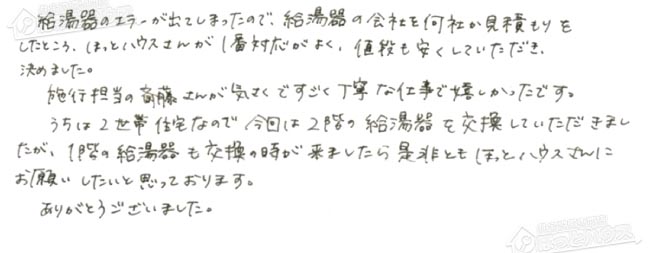 給湯器のエラーが出てしまったので、給湯器の会社を何社か見積もりを
したところ、ほっとハウスさんが1番対応がよく、値段も安くしていただき、
決めました。
施行担当の斎藤さんが気さくですごく丁寧な仕事で嬉しかったです。
うちは2世帯住宅なので今回は2階の給湯器を交換していただきまし
たが、1階の給湯器も交換の時が来ましたら是非ともほっとハウスさんに
お願いしたいと思っております。
ありがとうございました。
ほっとハウス